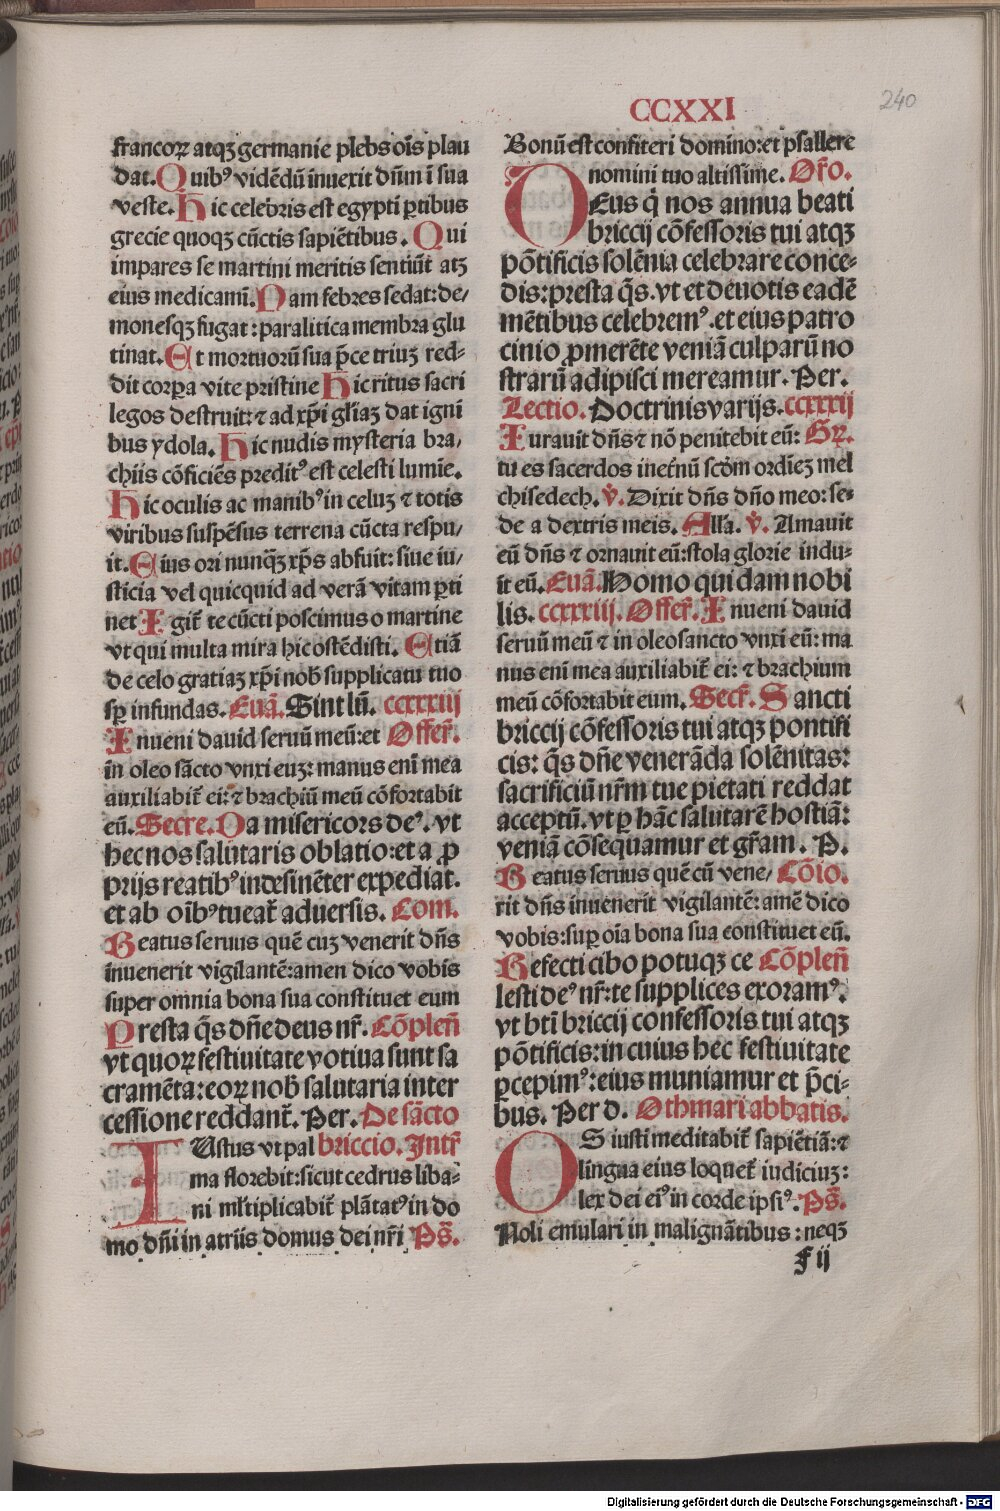 CCXXI
240
francoꝝ atqꝫ germanie plebs oı̄s plau
dat. Quibꝰ vidēdū inuexit dn̄m ī sua
veste. Hic celebris est egypti ꝑtibus
grecie quoqꝫ cūctis sapiētibus. Qui
impares se martini meritis sentiūt atꝫ
eius medicamī. Nam febres sedat: de⸗
monesqꝫ fugat: paralitica membra glu
tinat. Et mortuorū sua p̄ce triuꝫ red⸗
dit corꝑa vite pristine Hic ritus sacri
legos destruit: ⁊ ad xp̄i gl̄iaꝫ dat igni
bus ydola. Hic nudis mysteria bra⸗
chiis cōficiēs preditꝰ est celesti lumīe.
Hic oculis ac manibꝰ in celuꝫ ⁊ totis
viribus suspēsus terrena cūcta respu⸗
it. Eius ori nunqꝫ xp̄s abfuit: siue iu⸗
sticia vel quicquid ad verā vitam ꝑti
net Igit̄ te cūcti poscimus o martine
vt qui multa mira hic ostēdisti. Etiā
de celo gratiaꝫ xp̄i nob̄ supplicatu tuo
sꝑ infundas. Euā. Sint lū. ccxxxiij
Inueni dauid seruū meū: et Offer̄.
in oleo sācto vnxi euꝫ: manus enī mea
auxiliabit̄ ei: ⁊ brachiū meū cōfortabit
eū. Secre. Da misericors deꝰ. vt
hec nos salutaris oblatio: et a ꝓ
prijs reatibꝰ indesinēter expediat.
et ab oı̄bꝰ tueat̄ aduersis. Com.
Beatus seruus quē cuꝫ venerit dn̄s
inuenerit vigilantē: amen dico vobis
super omnia bona sua constituet eum
Presta q̄s dn̄e deus nr̄. Cōplen̄
vt quoꝝ festiuitate votiua sunt sa
cramēta: eoꝝ nob̄ salutaria inter
cessione reddant̄. Per. De sācto
IUstus vt pal briccio. Intr̄
ma florebit: sicut cedrus liba⸗
ni ml̄tiplicabit̄ plātatꝰ in do
mo dn̄i in atriis domus dei nr̄i Ps̄.
Bonū est confiteri domino: et psallere
nomini tuo altissime. Or̄o.
DEus q̄ nos annua beati
briccij cōfessoris tui atqꝫ
pōtificis solēnia celebrare conce⸗
dis: presta q̄s. vt et deuotis eadē
mētibus celebremꝰ. et eius patro
cinio ꝓmerēte veniā culparū no
strarū adipisci mereamur. Per.
Lectio. Doctrinis varijs. ccxxxij
Iurauit dn̄s ⁊ nō penitebit eū: Gꝝ.
tu es sacerdos inet̄nū scd̄m ordīeꝫ mel
chisedech. v̄. Dixit dn̄s dn̄o meo: se⸗
de a dextris meis. Alla. v̄. Amauit
eū dn̄s ⁊ ornauit eū: stola glorie indu⸗
it eū. Euā. Homo quidam nobi
lis. ccxxxiij. Offer̄. Inueni dauid
seruū meū ⁊ in oleo sancto vnxi eū: ma
nus enī mea auxiliabit̄ ei: ⁊ brachium
meū cōfortabit eum. Secr̄. Sancti
briccij cōfessoris tui atqꝫ pontifi
cis: q̄s dn̄e venerāda solēnitas:
sacrificiū nr̄m tue pietati reddat
acceptū. vt ꝑ hāc salutarē hostiā:
veniā cōsequamur et gr̄am. P.
Beatus seruus quē cū vene⸗ Cōio.
rit dn̄s inuenerit vigilantē: amē dico
vobis: suꝑ oı̄a bona sua constituet eū.
Refecti cibo potuqꝫ ce Cōplen̄
lesti deꝰ nr̄: te supplices exoramꝰ.
vt bt̄i briccij confessoris tui atqꝫ
pōtificis: in cuius hec festiuitate
ꝑcepimꝰ: eius muniamur et p̄ci⸗
bus. Per d. Othmari abbatis.
OS iusti meditabit̄ sapiētiā: ⁊
lingua eius loquet̄ iudiciuꝫ:
lex dei eiꝰ in corde ipsiꝰ. Ps̄.
Noli emulari in malignātibus: neqꝫ
F ij
Digitalisierung gefördert durch die Deutsche Forschungsgemeinschaft - DFG